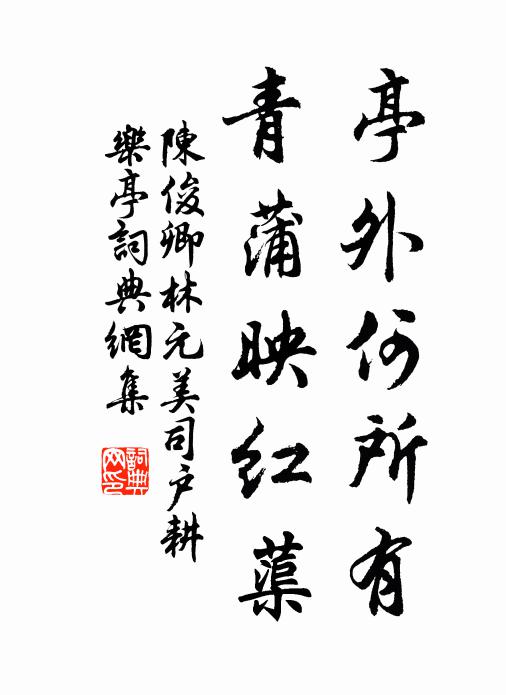 亭外何所有
青蒲映红蕖
陳俊卿林元美司戶耕
樂亭詞典網集
詞典网印